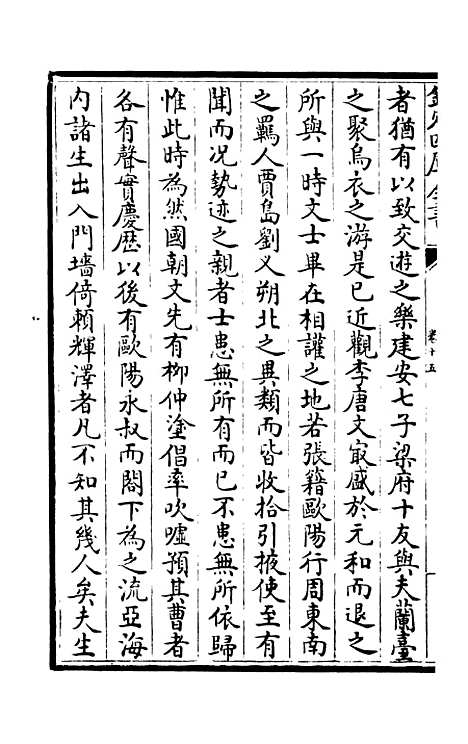 欽定四庫全書
卷十五
者猶有以致交遊之樂建安七子梁府十友與夫蘭臺
之聚烏衣之游是已近觀李唐文㝡盛於元和而退之
所與一時文士畢在相讙之地若張籍歐陽行周東南
之羈人賈島劉义朔北之異類而皆收拾引掖使至有
聞而况勢迹之親者士患無所有而已不患無所依歸
惟此時為然國朝文先有柳仲塗倡率吹噓預其曹者
各有聲實慶歴以後有歐陽永叔而閣下為之流亞海
内諸生出入門墻倚賴輝澤者凡不知其幾人矣夫生